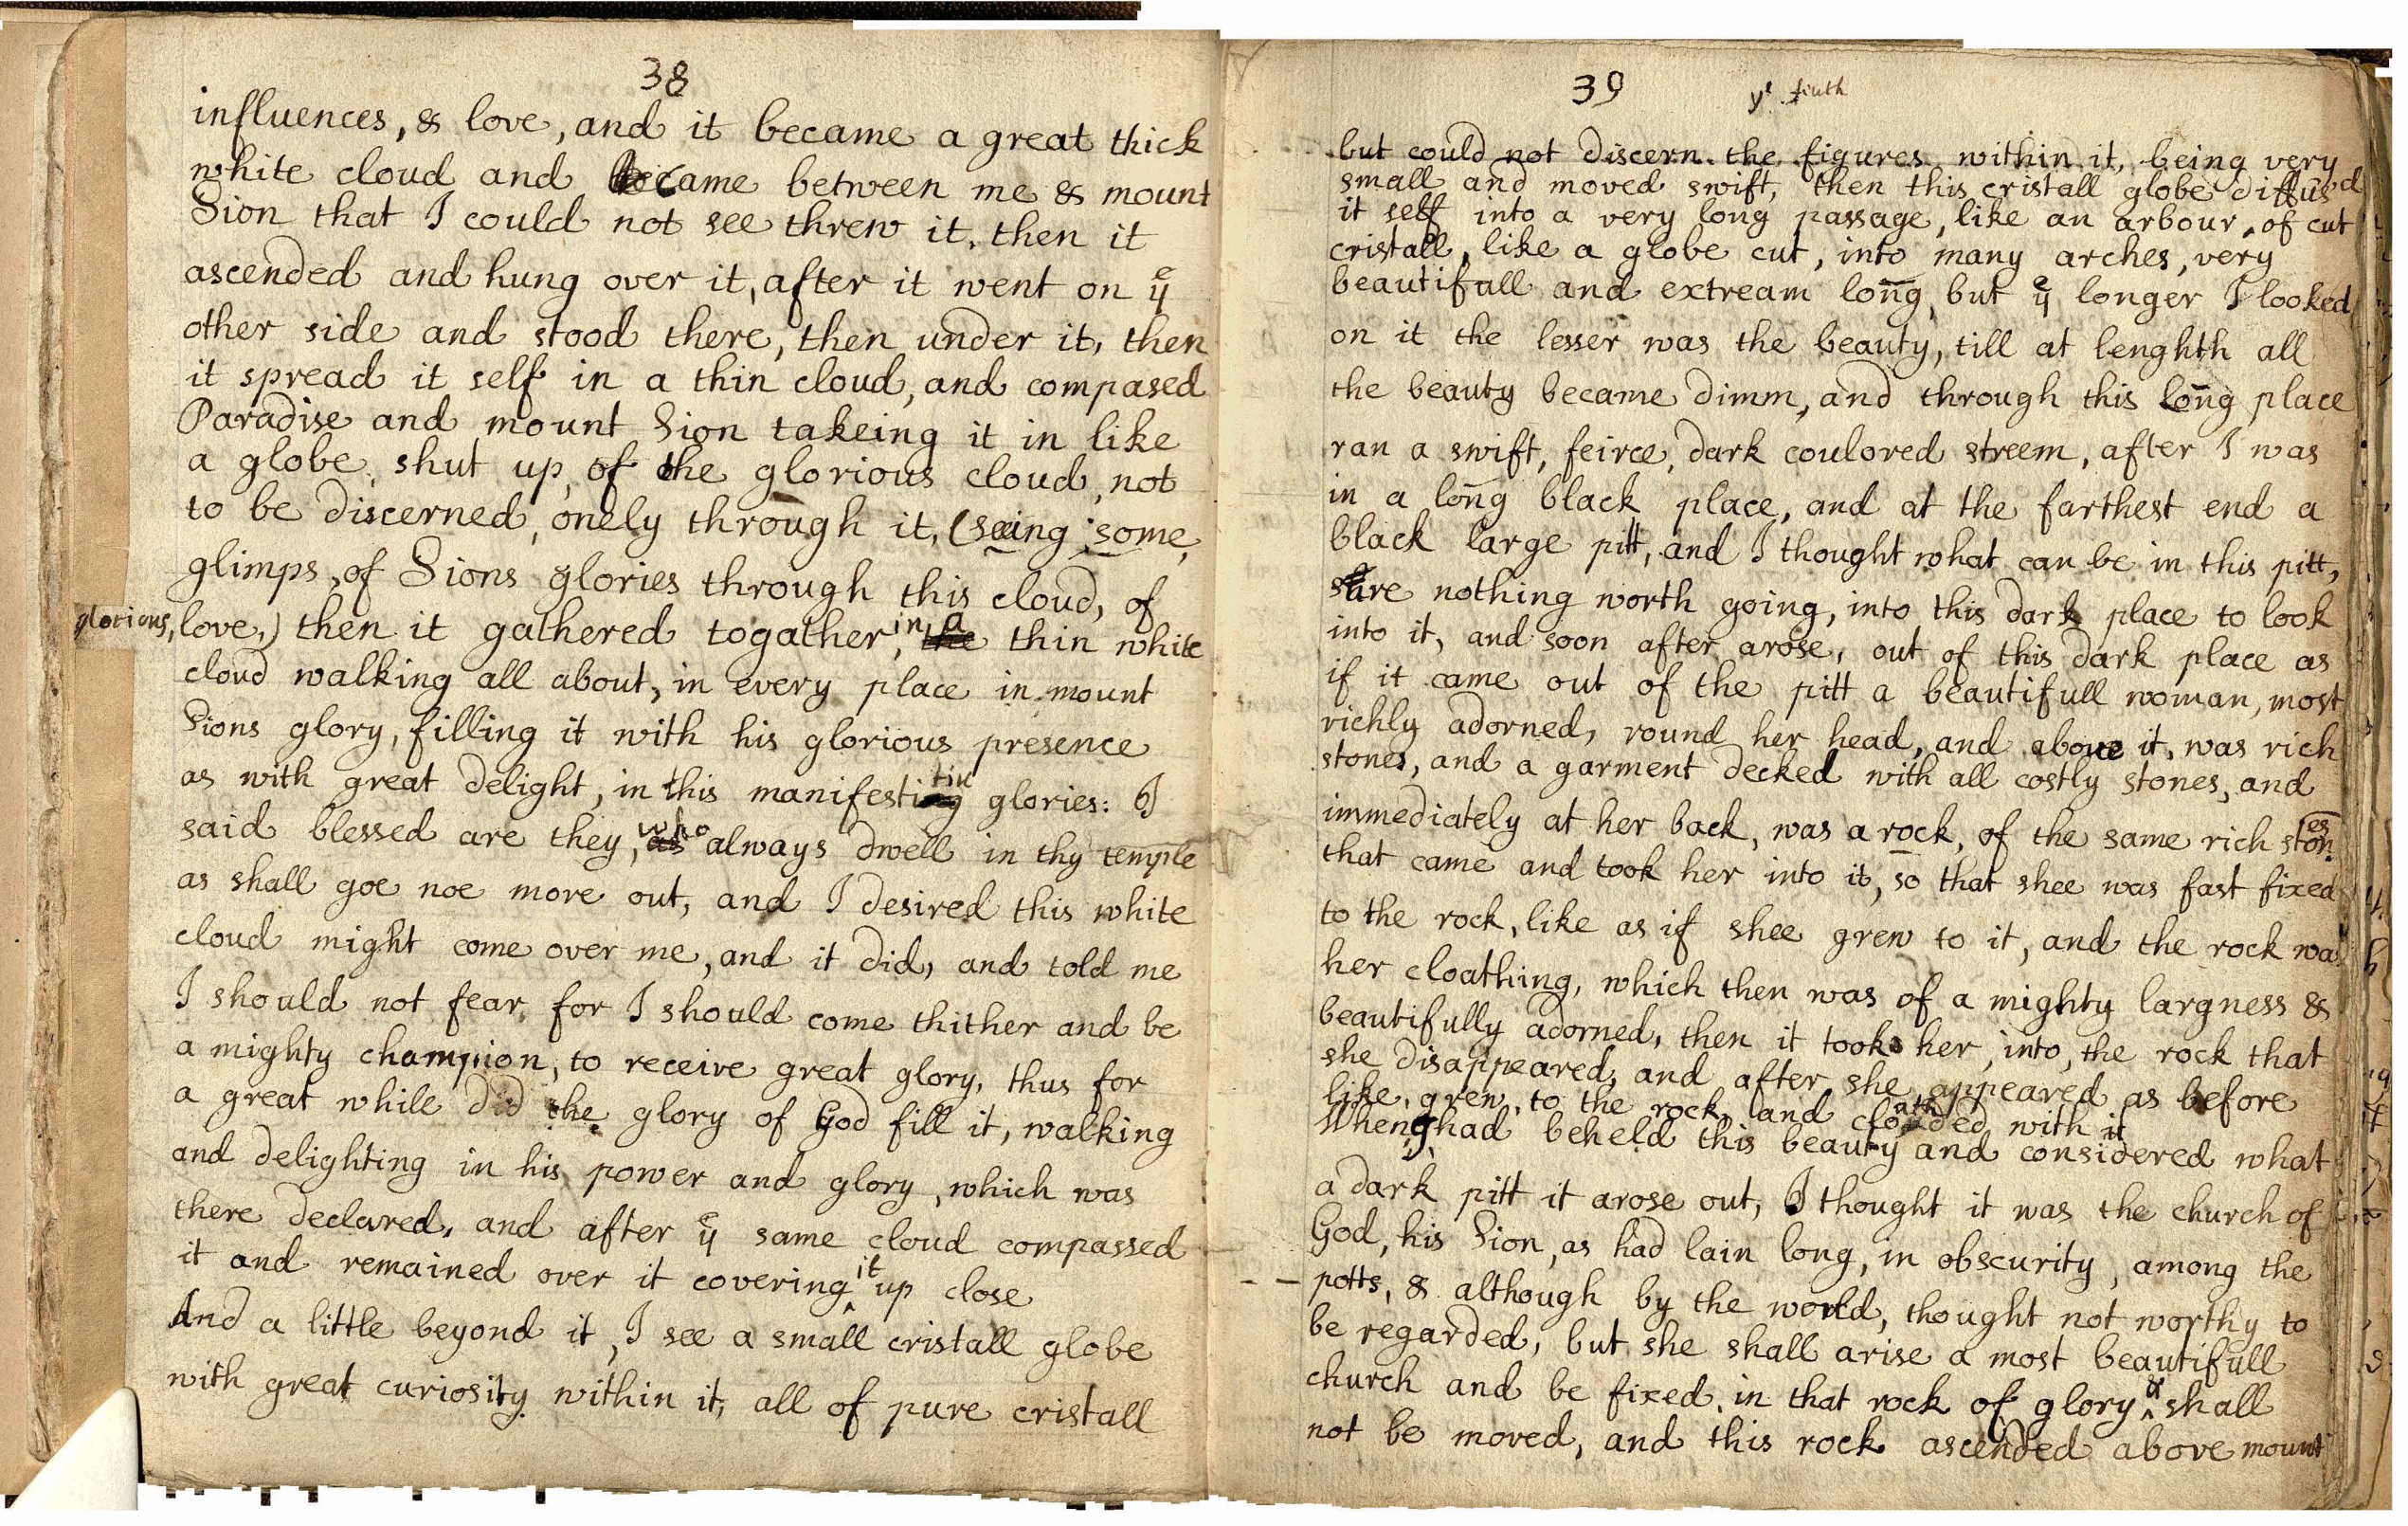 38
influences, & love, and it became a great thick
white cloud and came between me & mount
Sion that I could not see threw it, then it
ascended and hung over it, after it went on yͤ
other side and stood there, then under it, then
it spread it self in a thin cloud, and compased
Paradise and mount Sion takeing it in like
a globe, shut up, of the glorious cloud, not
to be discerned, onely through it, (seeing some
glimps, of Sions glories through this cloud, of
glorious, love,) then it gathered togather, in a the thin white
cloud walking all about, in every place in mount
Sions glory, filling it with his glorious presence
as with great delight, in this manifesting glories: I
said blessed are they, as who always dwell in thy temple
as shall goe noe more out, and I desired this white
cloud might come over me, and it did, and told me
I should not fear, for I should come thither and be
a mighty champion, to receive great glory, thus for
a great while did the glory of God fill it, walking
and delighting in his power and glory, which was
there declared, and after yͤ same cloud compassed
it and remained over it covering it up close
And a little beyond it, I see a small cristall globe
with great curiosity within it, all of pure cristall
39
but could not discern the figures within it, being very
small and moved swift, then this cristall globe diffus'd
it self into a very long passage, like an arbour, of cut
cristall, like a globe cut, into many arches, very
beautifull and extream long, but yͤ longer I looked
on it the lesser was the beauty, till at lenghth all
the beauty became dimm, and through this long place
ran a swift, feirce, dark coulored streem, after I was
in a long black place, and at the farthest end a
black large pitt, and I thought what can be in this pitt,
sure nothing worth going, into this dark place to look
into it, and soon after arose, out of this dark place as
if it came out of the pitt a beautifull woman, most
richly adorned, round her head, and above it, was rich
stones, and a garment decked with all costly stones, and
immediately at her back, was a rock, of the same rich stones
that came and took her into it, so that shee was fast fixed
to the rock, like as if shee grew to it, and the rock was
her cloathing, which then was of a mighty largness &
beautifully adorned, then it took her, into, the rock that
she disappeared, and after she appeared as before
like, grew, to the rock, and cloathed with it
When I had beheld this beauty and considered what
a dark pitt it arose out, I thought it was the church of
God, his Sion, as had lain long, in obscurity, among the
potts, & although by the world, thought not worthy to
be regarded, but she shall arise a most beautifull
church and be fixed, in that rock of glory & shall
not be moved, and this rock ascended above mount